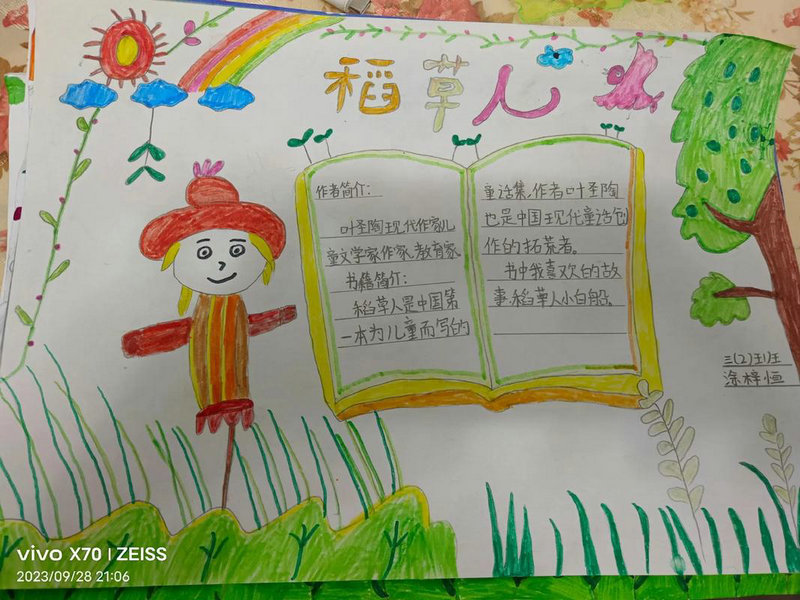 稻草人
作者简介:
叶圣陶现代作家儿
童文学家作家、教育家
书籍简介:
稻草人是中国第
一本为儿童而写的
童话集,作者叶圣陶
也是中国现代童话创
作的拓荒者。
书中我喜欢的故
事:稻草人小白船。
三(2)班
涂梓恒
vivo X70 | ZEISS
2023/09/28 21:06